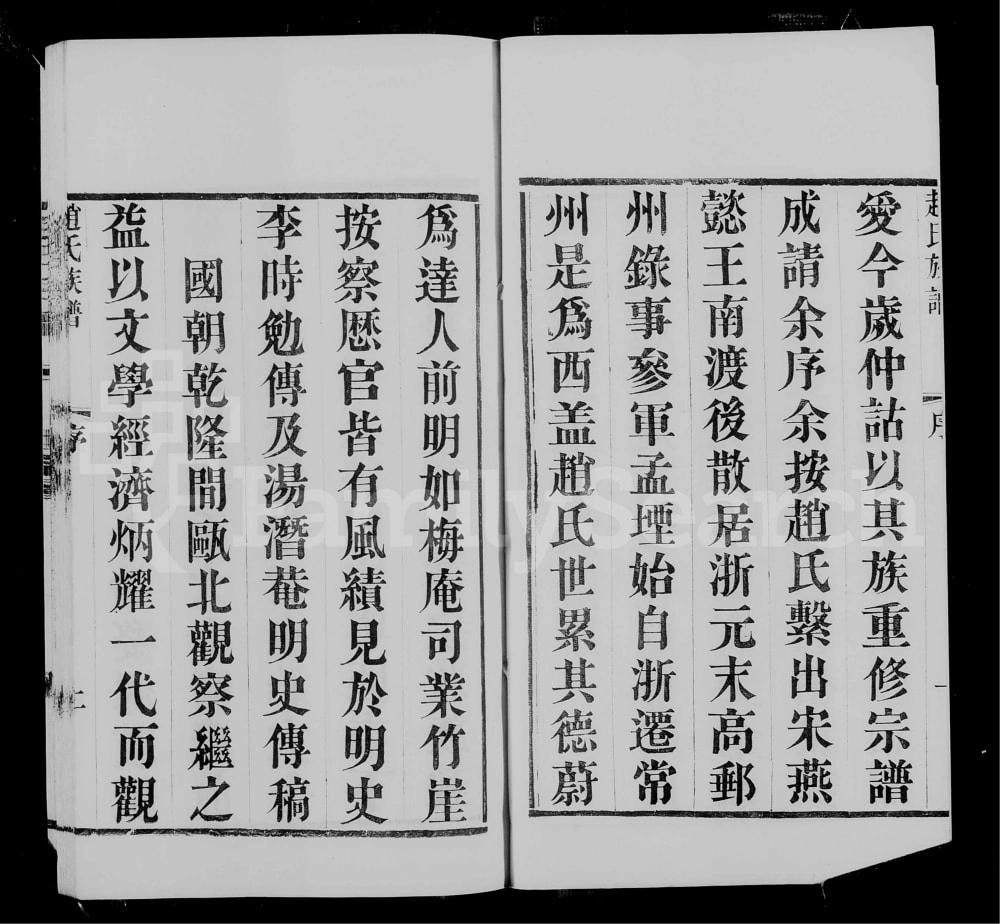 趙氏族譜
序
一
愛今歲仲詁以其族重修宗譜
成請余序余按趙氏繫出宋燕
懿王南渡後散居浙元末高郵
州錄事參軍孟堙始自浙遷常
州是爲西盖趙氏世累其德蔚
爲達人前明如梅庵司業竹崖
按察歷官皆有風績見於明史
李時勉傳及湯潛菴明史傳稿
國朝乾隆間甌北觀察繼之
益以文學經濟炳耀一代而觀
趙氏族譜
序
FamilySearch